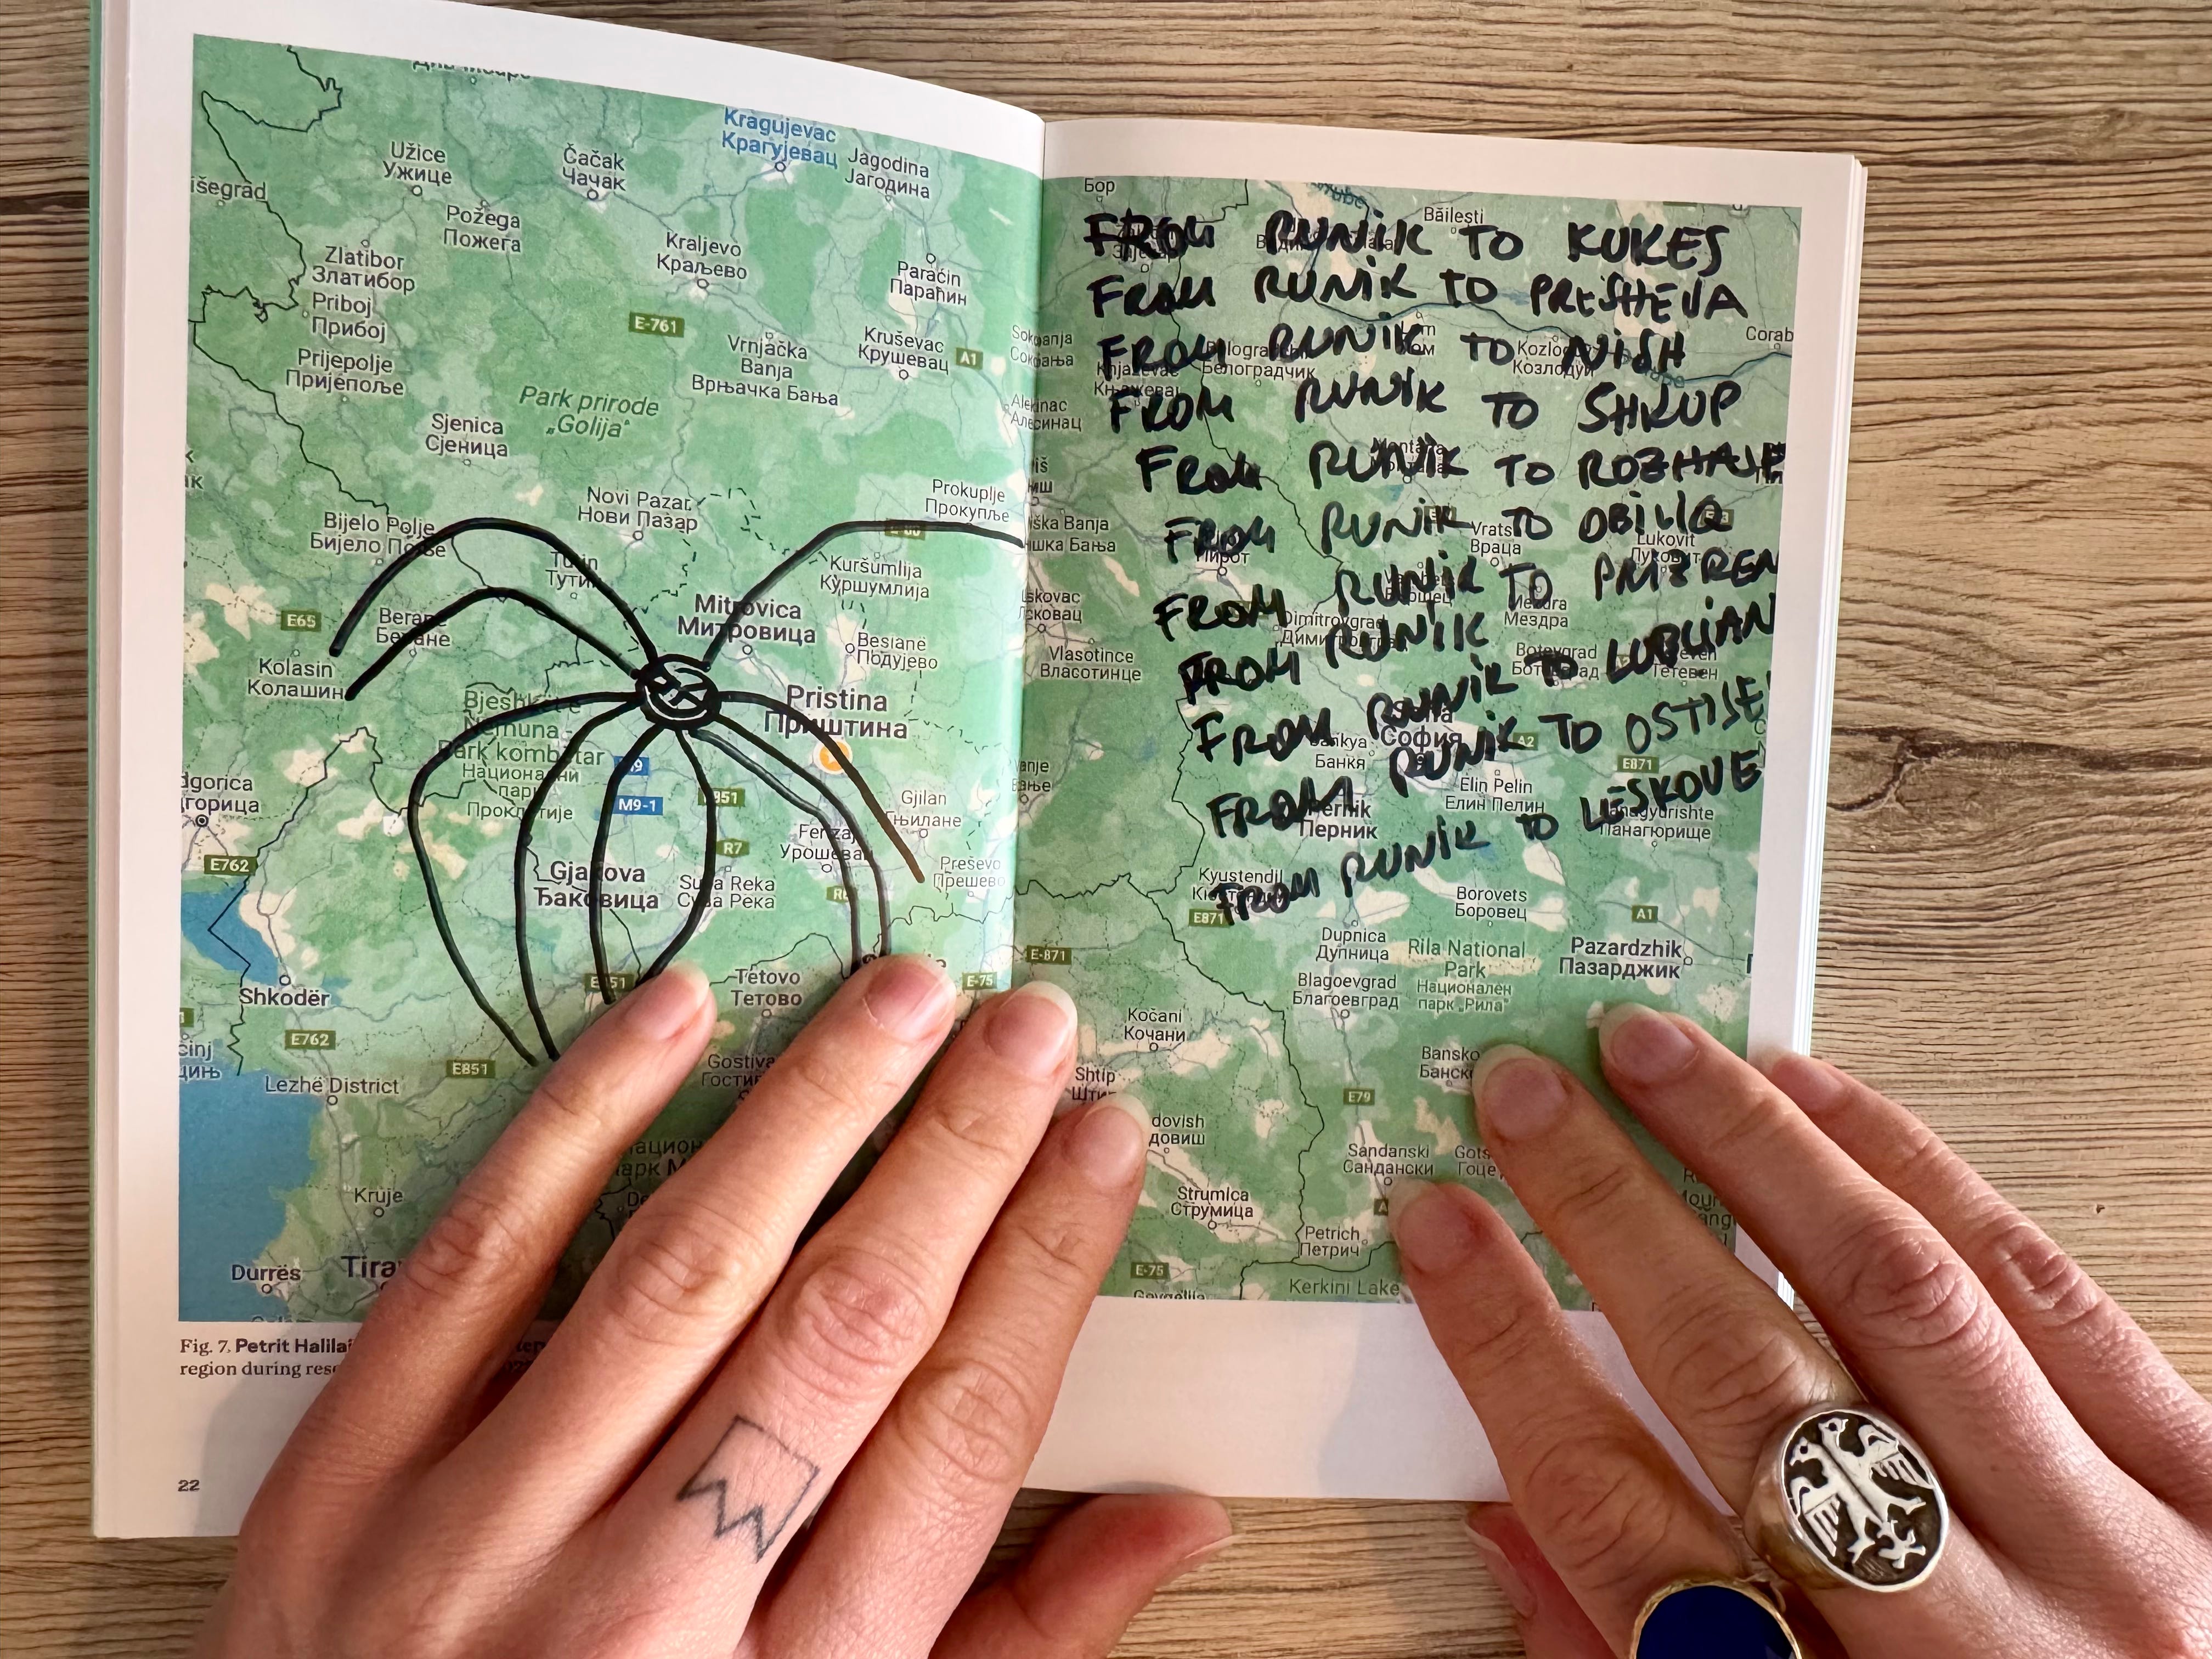 Užice
Ужице
Požega
Пожега
Čačak
Чачак
Kragujevac
Крагујевац
Jagodina
Јагодина
išegrad
Zlatibor
Златибор
Priboj
Прибој
Prijepolje
Пријепоље
Kraljevo
Краљево
Paraćin
Параћин
E-761
Vrnjačka
Banja
Врњачка Бања
Kruševac
Крушевац
A1
Park prirode
„Golija“
Sjenica
Сјеница
Novi Pazar
Нови Пазар
Prokuplje
Прокупље
Bijelo Polje
Бијело Поље
Tutin
Тутин
Kuršumlija
Куршумлија
E65
Berane
Беране
Mitrovica
Митровица
Besianë
Подујево
Kolasin
Колашин
Pristina
Приштина
Bjeshkët e
Nemuna
Park kombëtar
Национални
парк
Проклетије
M9-1
dgorica
горица
Gjilan
Гњилане
Ferizaj
Урошевац
R7
E762
Preševo
Прешево
Gjakova
Ђаковица
Suva Reka
Сува Река
Shkodër
Tetovo
Тетово
E-75
E762
E851
Lezhë District
Gostiva
Kruje
Durrës
Tira
Fig. 7. Petrit Halilaj
region during rese
22
Бор
Băilești
FROM RUNIK TO KUKES
FROM RUNIK TO PRESHEVA
FROM RUNIK TO NISH
FROM RUNIK TO SHKUP
FROM RUNIK TO ROZHAJE
FROM RUNIK TO OBILIQ
FROM RUNIK TO PRIZREN
FROM RUNIK TO LUBLIAN
FROM RUNIK TO OSTIJE
FROM RUNIK TO LESKOVE
FROM RUNIK
Corab
Белоградчик
Козлодуй
iška Banja
шка Бања
Vrats
Враца
Lukovit
Vlasotince
Власотинце
Мездра
София
Банкя
A2
E871
Elin Pelin
Елин Пелин
Перник
Панагюрище
Kyustendil
E871
Borovets
Боровец
A1
Dupnica
Дупница
Rila National
Park
Национален
парк „Рила“
Pazardzhik
Пазарджик
E-871
Blagoevgrad
Благоевград
Kočani
Кочани
Bansko
Банск
Shtip
E79
dovish
довиш
Sandanski
Сандански
Strumica
Струмица
Petrich
Петрич
E-75
Kerkini Lake